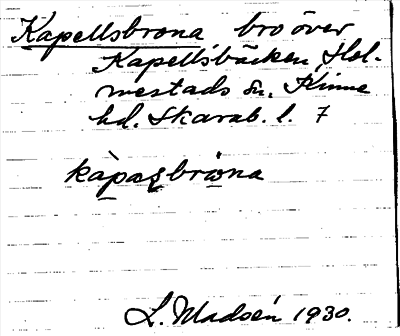 Kapellsbrona bro över
Kapellsbäcken, Hol-
mestads sn, Kinne
hd. Skarab. l. 7
kàpaʂbròna
L. Madsén 1930.